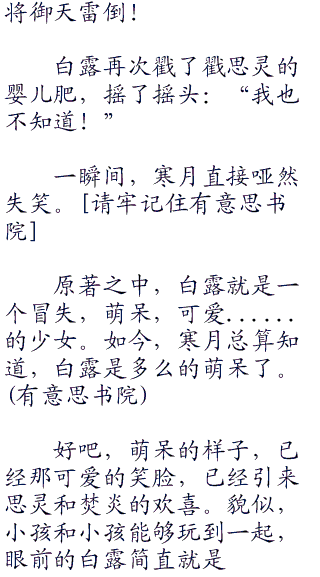 将御天雷倒！
白露再次戳了戳思灵的
婴儿肥，摇了摇头：“我也
不知道！”
一瞬间，寒月直接哑然
失笑。[请牢记住有意思书
院]
原著之中，白露就是一
个冒失，萌呆，可爱......
的少女。如今，寒月总算知
道，白露是多么的萌呆了。
(有意思书院)
好吧，萌呆的样子，已
经那可爱的笑脸，已经引来
思灵和焚炎的欢喜。貌似，
小孩和小孩能够玩到一起，
眼前的白露简直就是